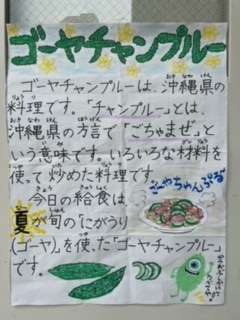 ゴーヤチャンプルー
ゴーヤチャンプルーは、沖縄県の
料理です。「チャンプルー」とは
沖縄県の方言で「ごちゃまぜ」と
いう意味です。いろいろな材料を
使って炒めた料理です。
ごーやちゃんぷるー
今日の給食は、
夏が旬の「にがうり
(ゴーヤ)を使った「ゴーヤチャンプルー」
です。